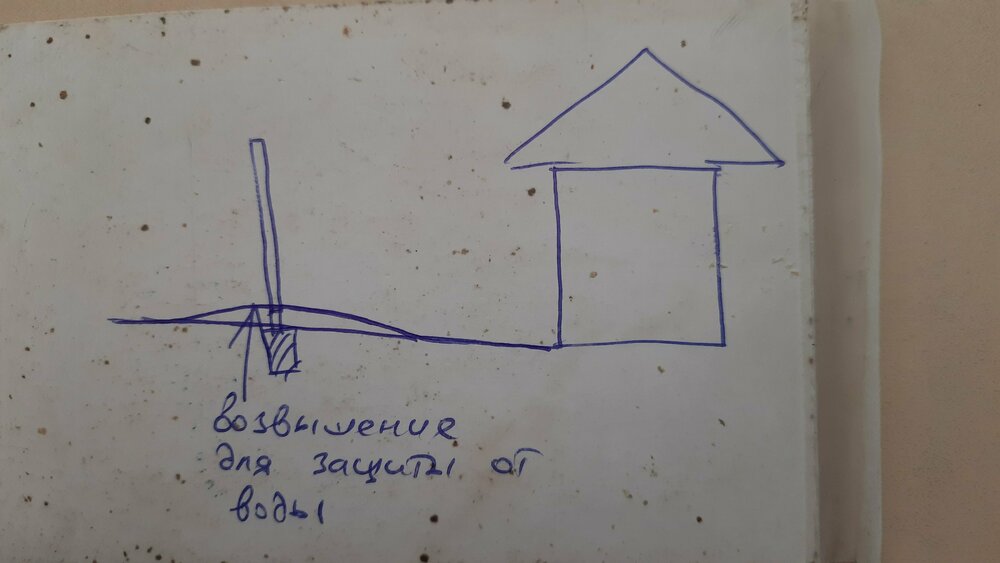 возвышение
для защиты от
воды